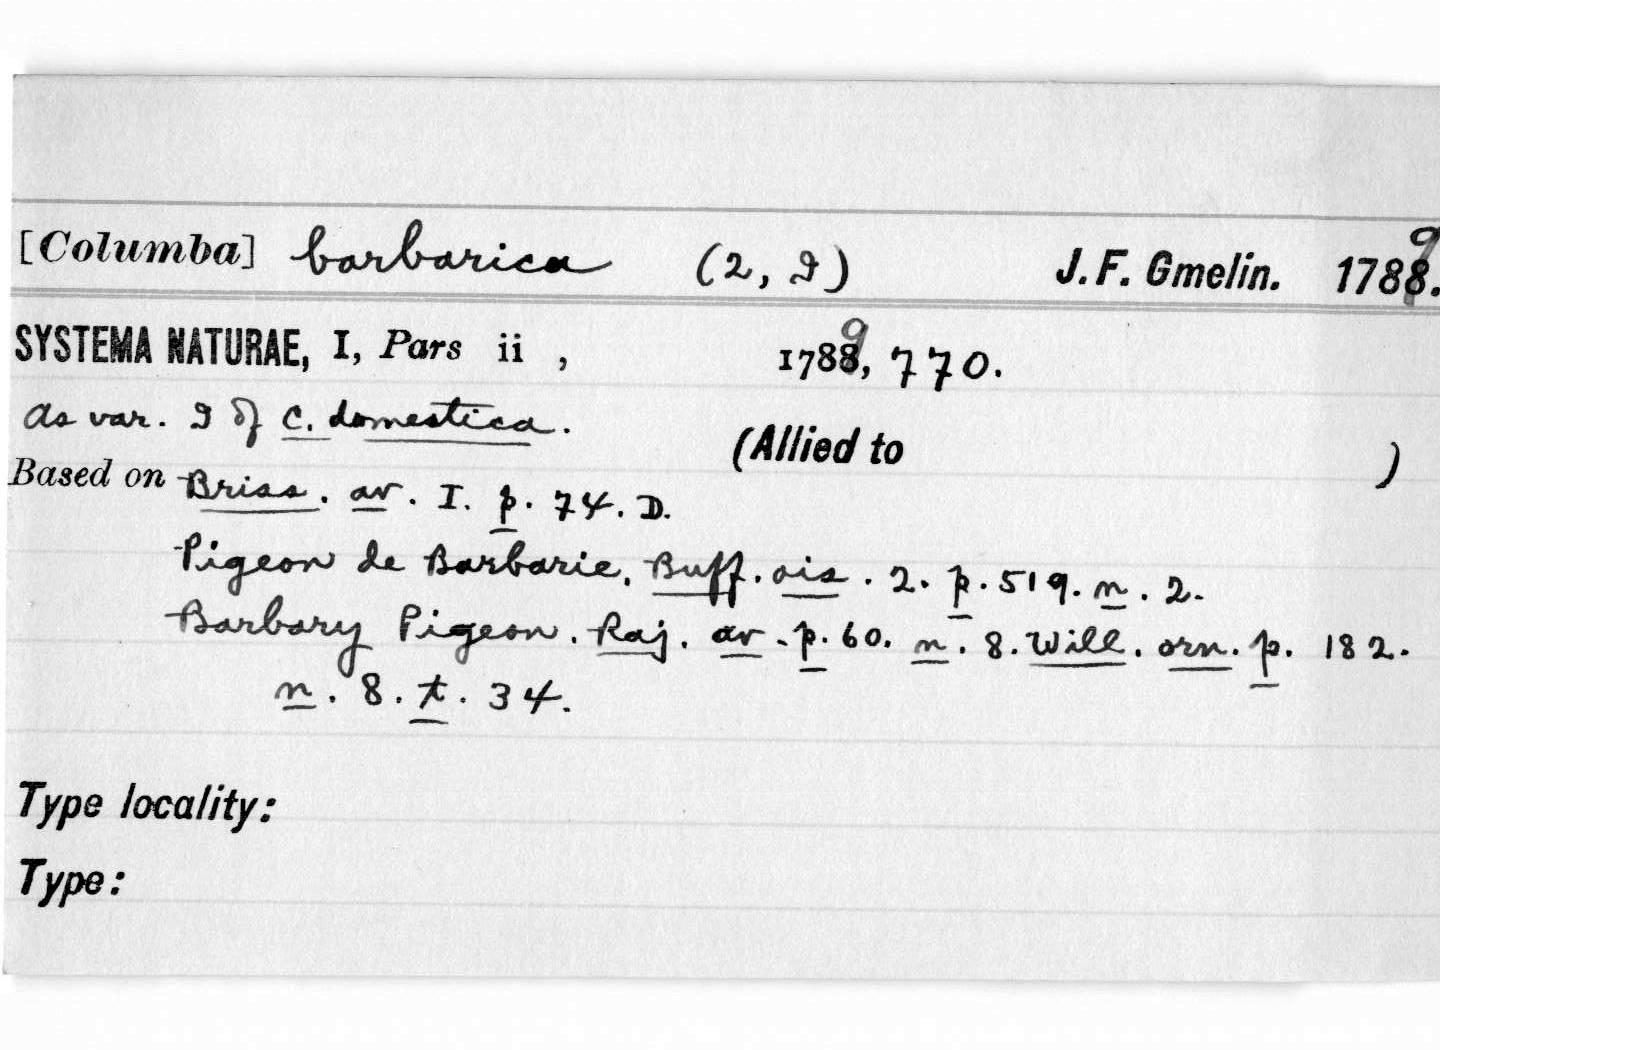 [Columba] barbarica (2, ϑ) J. F. Gmelin. 1789.
SYSTEMA NATURAE, I, Pars ii , 1789, 770.
As var. ϑ of C. domestica.
(Allied to )
Based on Briss. av. I. p. 74. D.
Pigeon de Barbarie, Buff. ois. 2. p. 519. n. 2.
Barbary Pigeon. Raj. av. p. 60. n. 8. Will. orn. p. 182.
n. 8. t. 34.
Type locality:
Type: